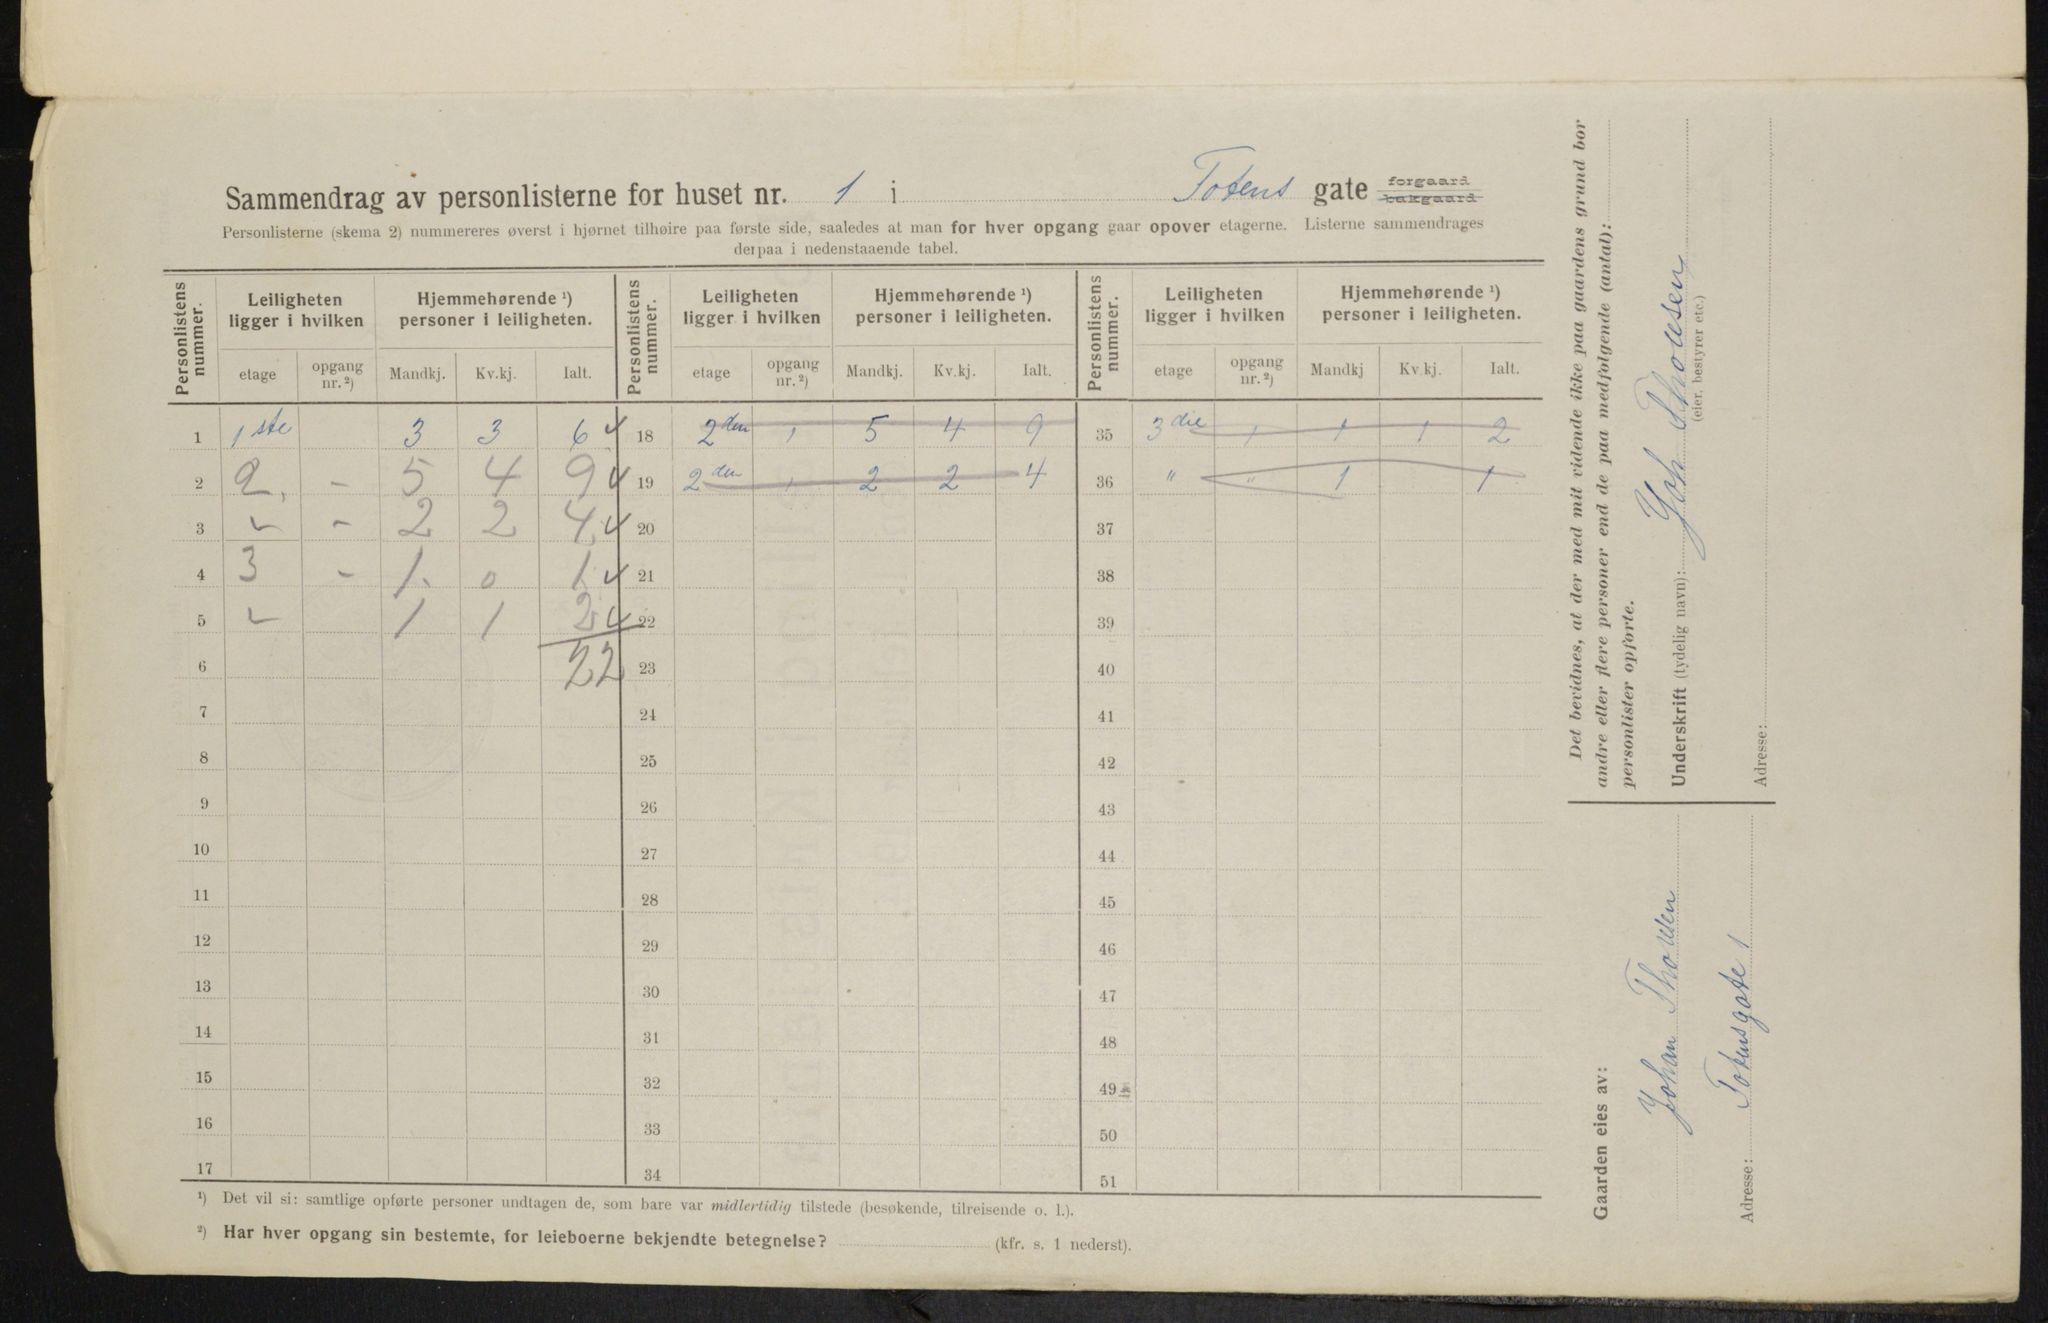 Sammendrag av personlisterne for huset nr. 1 i Totens gate forgaard bakgaard
Personlisterne (skema 2) nummereres øverst i hjørnet tilhøire paa første side, saaledes at man for hver opgang gaar opover etagerne. Listerne sammendrages
derpaa i nedenstaaende tabel.
Personlistens nummer. Leiligheten ligger i hvilken Hjemmehørende ¹) personer i leiligheten. Personlistens nummer. Leiligheten ligger i hvilken Hjemmehørende ¹) personer i leiligheten. Personlistens nummer. Leiligheten ligger i hvilken Hjemmehørende ¹) personer i leiligheten.
etage opgang nr. ²) Mandkj. Kv.kj. Ialt. etage opgang nr. ²) Mandkj. Kv.kj. Ialt. etage opgang nr. ²) Mandkj Kv.kj. Ialt.
1 1ste 3 3 6 18 2den 1 5 4 9 35 3die 1 1 1 2
2 2. - 5 4 9 19 2den 1 2 2 4 36 " " 1 1
3 " - 2 2 4 20 37
4 3 - 1 0 1 21 38
5 " 1 1 2 22 39
6 22 23 40
7 24 41
8 25 42
9 26 43
10 27 44
11 28 45
12 29 46
13 30 47
14 31 48
15 32 49
16 33 50
17 34 51
¹) Det vil si: samtlige opførte personer undtagen de, som bare var midlertidig tilstede (besøkende, tilreisende o. l.).
²) Har hver opgang sin bestemte, for leieboerne bekjendte betegnelse? (kfr. s. 1 nederst).
Det bevidnes, at der med mit vidende ikke paa gaardens grund bor
andre eller flere personer end de paa medfølgende (antal):
personlister opførte.
Underskrift (tydelig navn): Joh Thoresen
(eier, bestyrer etc.)
Adresse:
Gaarden eies av:
Johan Thoresen
Adresse: Totensgate 1